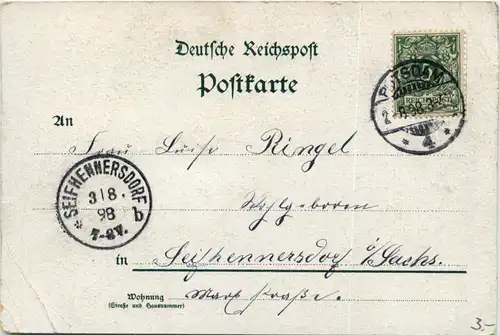 Deutsche Reichspost
Postkarte
An
Frau Luise Ringel
Wohlgeboren
in Seifhennersdorf i/Sachs.
Wohnung
(Straße und Hausnummer)
Markt straße.
POTSDAM
98
* 4 *
REICHSPOST
* SEIFHENNERSDORF b
3/8.
98
7-8V.
3-